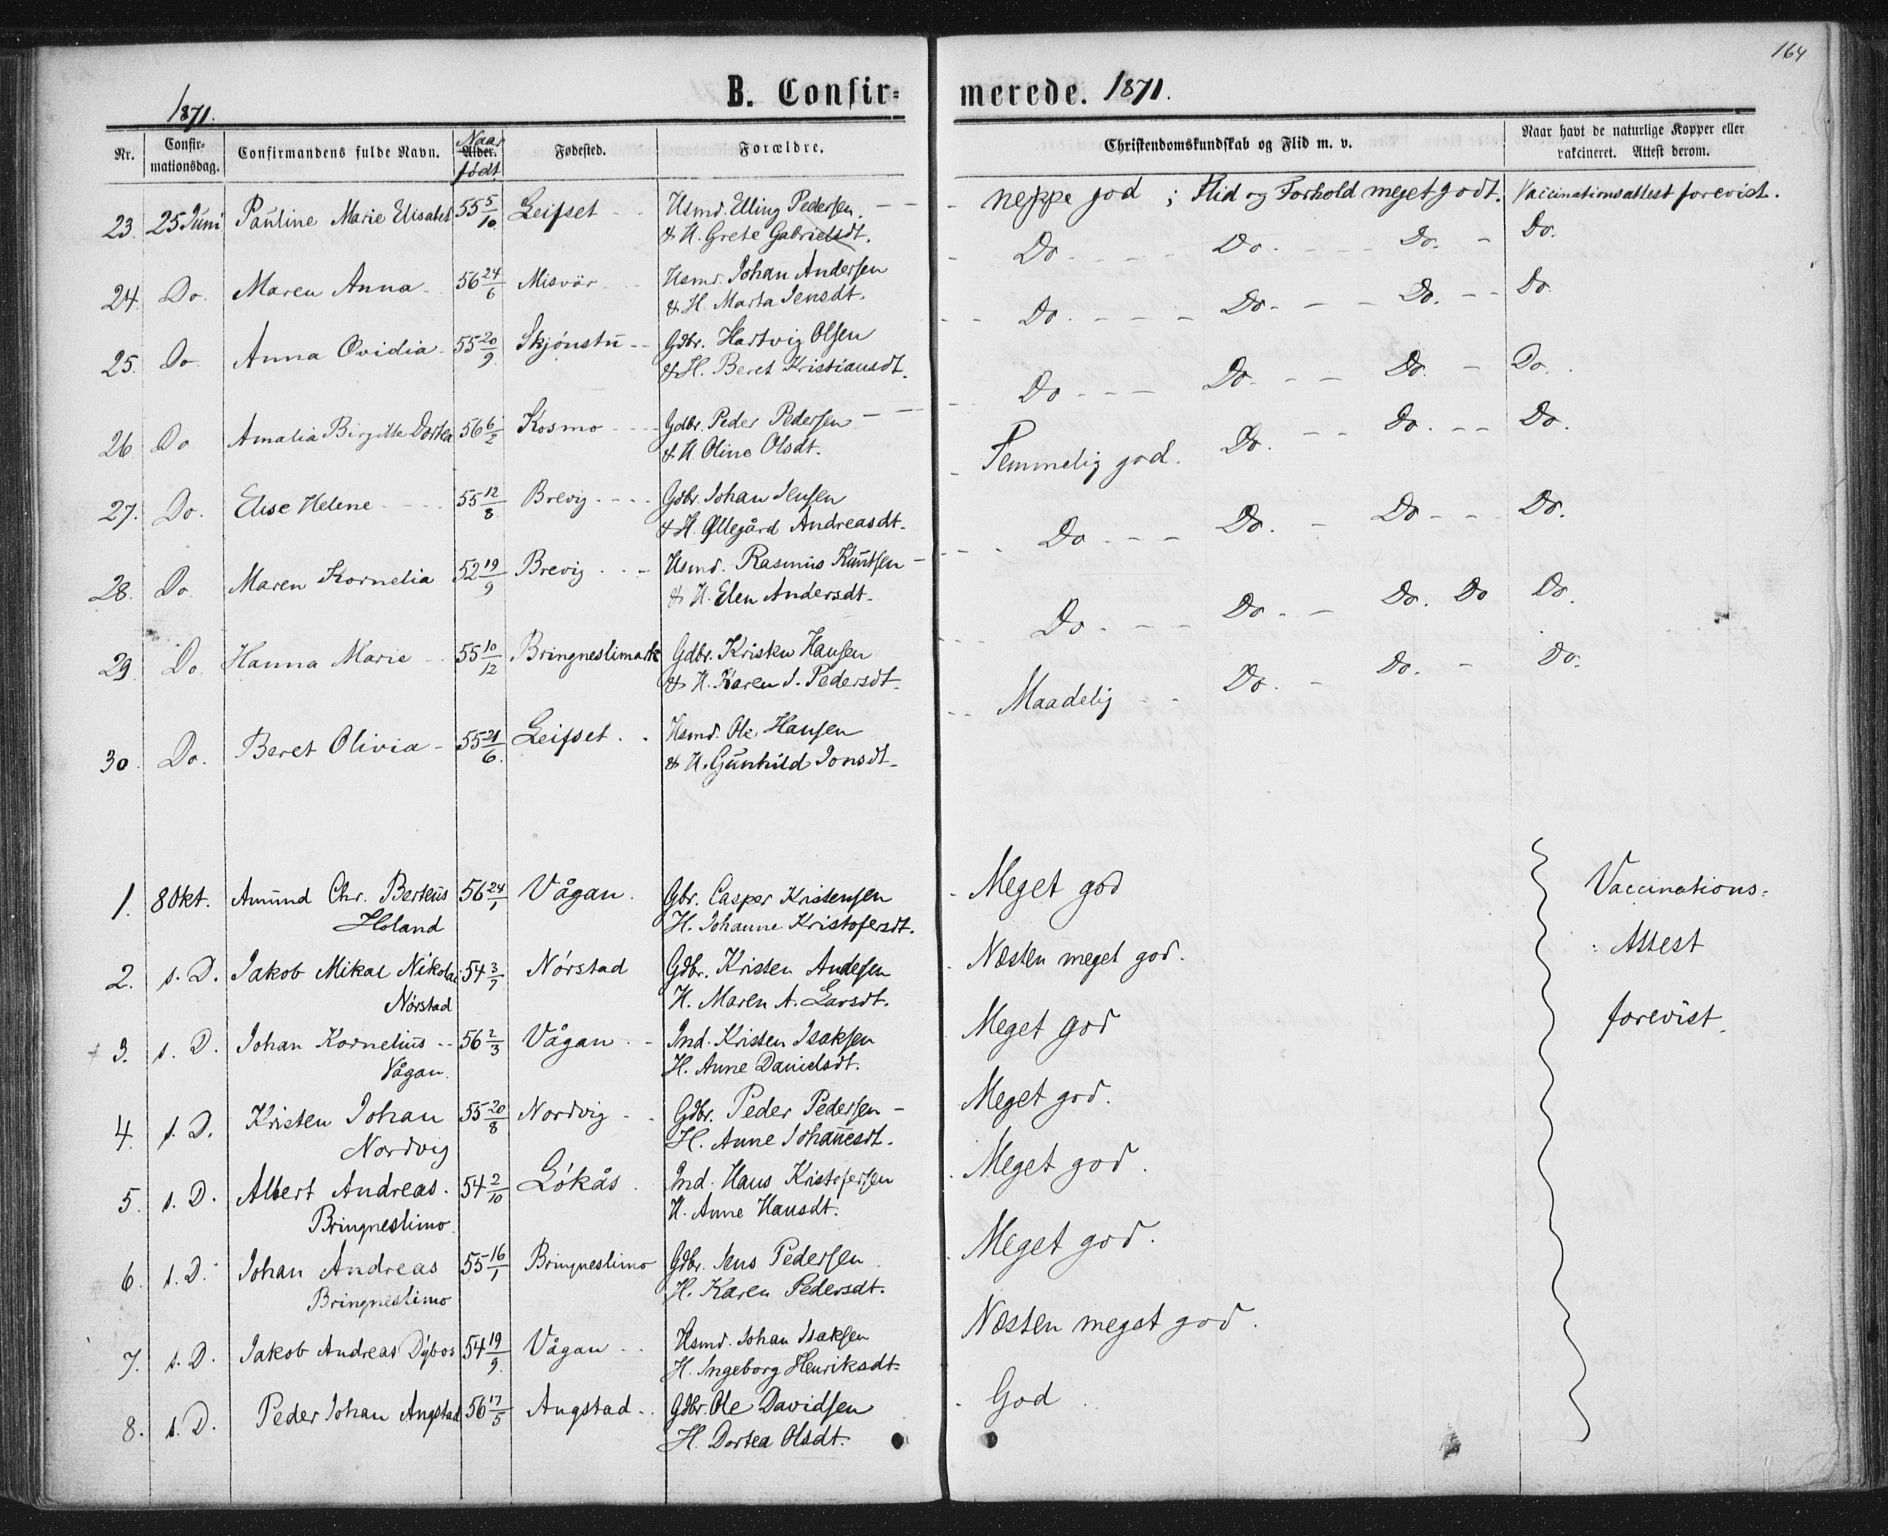 164
1871.
B. Confirmerede. 1871.
Nr. Confirmationsdag. Confirmandens fulde Navn. Alder. Naar født Fødested. Forældre. Christendomskundskab og Flid m. v. Naar havt de naturlige Kopper eller vakcineret. Attest derom.
23. 25 Juni Pauline Marie Elisabet 55 5/10 Leifset - - Husmd. Elling Pedersen. - - neppe god ; Flid og Forhold meget godt. Vaccinationsattest forevist.
& H. Grete Gabrielsdt.
24. Do. Maren Anna 56 24/6 Misvær Husmd. Johan Andersen Do Do. Do. Do.
& H. Marta Jensdt.
25. Do. Anna Ovidia 55 20/9 Skjönstu - - Gdbr. Hartvig Olsen Do Do. Do. Do.
& H. Beret Kristiansdt.
26. Do Amalia Birgitte Dortea 56 6/2 Kosmo Gdbr. Peder Pedersen Do Do. Do. Do.
& H. Oline Olsdt.
27. Do. Elise Helene 55 12/8 Brevig Gdbr. Johan Jensen Temmelig god. Do. Do. Do.
& H. Øllegård Andreasdt.
28. Do. Maren Kornelia 52 19/9 Brevig Husmd. Rasmus Knutsen Do Do. Do Do.
& H. Elen Andersdt.
29. Do. Hanna Marie 55 10/12 Bringneslimark Gdbr. Kristen Hansen Do. Do. Do. Do Do.
& H. Karen J. Pedersdt.
30. Do. Beret Olivia 55 21/6 Leifset Husmd. Ole Hansen Maadelig Do. Do. Do.
& H. Gunhild Jonsdt.
1. 8 Okt. Amund Chr. Berteus 56 24/1 Vågan. Gbr. Casper Kristensen Meget god Vaccinations-
Holand H. Johanne Kristofersdt.
2. s. D. Jakob Mikal Nikolai 54 3/7 Nörstad Gdbr. Kristen Andesen Næsten meget god. Attest
Nörstad H. Maren A. Larsdt.
3. s. D. Johan Kornelius 56 2/3 Vågan Ind. Kristen Isaksen Meget god forevist.
Vågan. H. Anne Danielsdt.
4. s. D. Kristen Johan 55 20/8 Nordvig Gdbr. Peder Pedersen Meget god.
Nordvig H. Anne Johanesdt.
5. s. D. Albert Andreas. 54 2/10 Lökås Ind. Hans Kristofersen Meget god.
Bringneslimo. H. Anne Hansdt.
6. s. D. Johan Andreas 55 16/1 Bringneslimo Gdbr. Jens Pedersen Meget god.
Bringneslimo H. Karen Pedersdt.
7. s. D. Jakob Andreas Dybos 54 19/9 Vågan Husmd. Johan Isaksen Næsten meget god.
H. Ingeborg Henriksdt.
8. s. D. Peder Johan Angstad 56 17/5 Angstad Gdbr Ole Davidsen God
H. Dortea Olsdt.